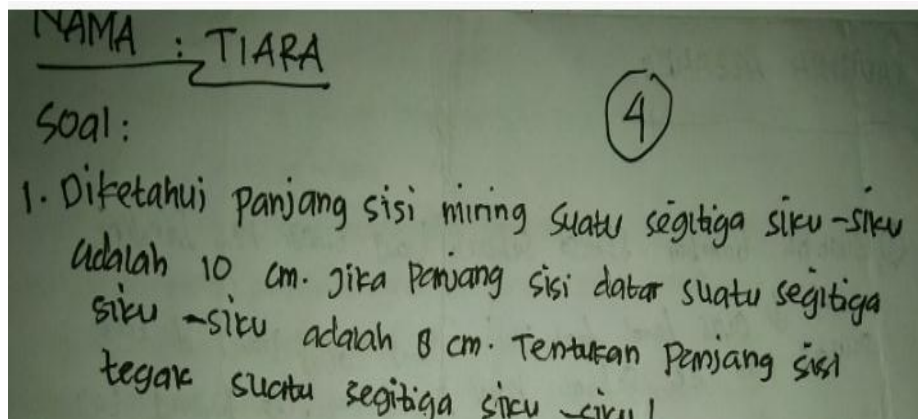 NAMA : TIARA
4
Soal :
1. Diketahui panjang sisi miring suatu segitiga siku-siku
adalah 10 cm. Jika panjang sisi datar suatu segitiga
siku-siku adalah 8 cm. Tentukan panjang sisi
tegak suatu segitiga siku-siku!